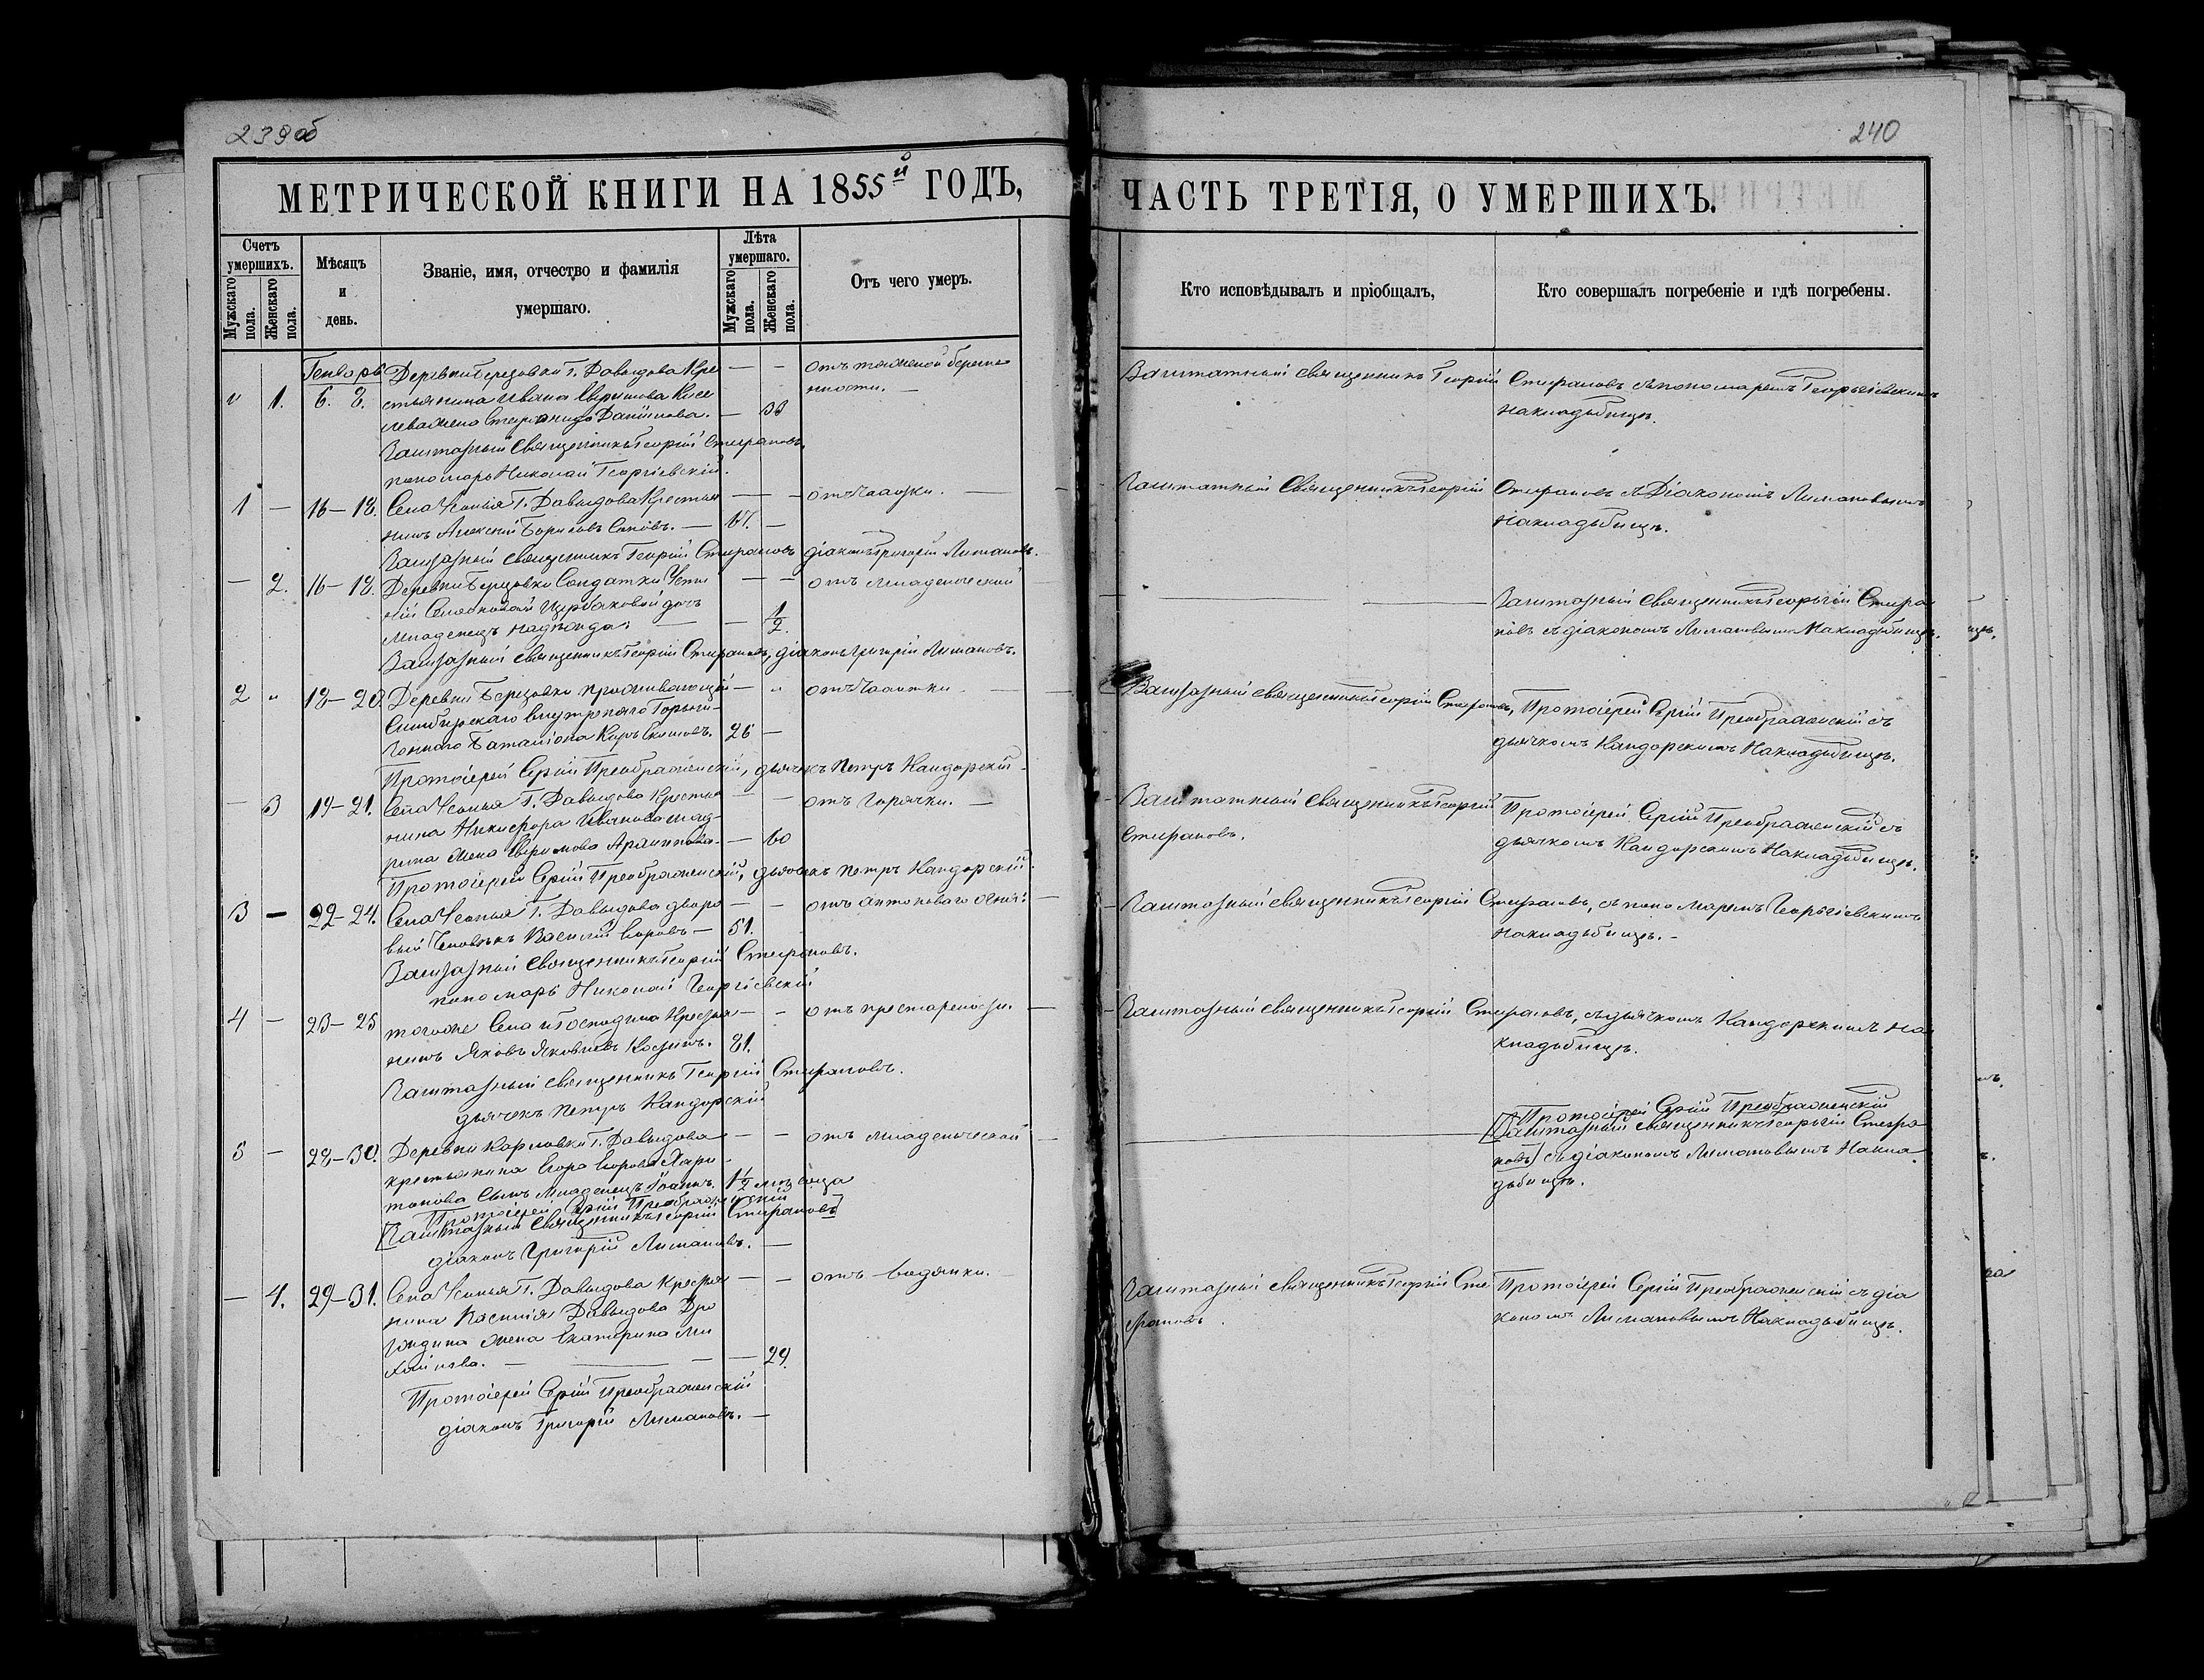 239 об
240
МЕТРИЧЕСКОЙ КНИГИ НА 1855й ГОДЪ,
ЧАСТЬ ТРЕТІЯ, О УМЕРШИХЪ.
Счетъ умершихъ.
Мужскаго пола.
Женскаго пола.
Мѣсяцъ и день.
Званіе, имя, отчество и фамилія умершаго.
Лѣта умершаго.
Мужскаго пола.
Женскаго пола.
Отъ чего умеръ.
Кто исповѣдывалъ и пріобщалъ,
Кто совершалъ погребеніе и гдѣ погребены.
Генварь Деревни Березовки Г. Давыдова Кре — - отъ тяжелой береме
" 1. 6. 8. стьянина Ивана Ефимова Кисе нности. —
лева жена Степанида Данилова. — 38
Заштатный Священникъ Георгій Стефановъ.
пономарь Николай Георгіевскій.
Заштатный Священникъ Георгій Стефановъ съ пономаремъ Георгіевскимъ
на кладбищѣ.
1 — 16-18. Села Усолья Г. Давыдова Крестья — - отъ Чахотки. —
нинъ Алексѣй Борисовъ — 67. —
Заштатный Священникъ Георгій Стефановъ діаконъ Григорій Лимановъ.
Заштатный Священникъ Георгій Стефановъ съ Діакономъ Лимановымъ
на кладбищѣ.
— 2. 16-18. Деревни Березовки Солдатки — - отъ младенческой
Щербаковой дочь
младенецъ Надежда. — 1/2.
Заштатный Священникъ Георгій Стефановъ, діаконъ Григорій Лимановъ.
Заштатный Священникъ Георгій Стефа
новъ съ діакономъ Лимановымъ На кладбищѣ.
2 " 18-20. Деревни Березовки проживающій — " отъ Чахотки.
Симбирскаго внутренняго Гарни
зоннаго Баталіона 26 —
Протоіерей Сергій Преображенскій, дьячекъ Петръ Кандорскій
Заштатный Священникъ Георгій Стефановъ, Протоіерей Сергій Преображенскій съ
дьячкомъ Кандорскимъ На кладбищѣ.
— 3 19-21. Села Усолья Г. Давыдова Крестья — — отъ Горячки. —
нина Никифора Иванова
жена Архиппова. — 60
Протоіерей Сергій Преображенскій, дьячекъ Петръ Кандорскій
Заштатный Священникъ Георгій
Стефановъ.
Протоіерей Сергій Преображенскій съ
дьячкомъ Кандорскимъ На кладбищѣ.
3 — 22-24. Села Усолья Г. Давыдова дворо — - отъ антонова огня: —
вый Человѣкъ Василій Егоровъ — 51.
Заштатный Священникъ Георгій Стефановъ.
пономарь Николай Георгіевскій
Заштатный Священникъ Георгій Стефановъ, съ пономаремъ Георгіевскимъ
на кладбищѣ. -
4 — 23-25 того же Села и Господина Крестья — - отъ престарелости —
нинъ Яковъ Яковлевъ 81.
Заштатный Священникъ Георгій Стефановъ.
дьячекъ Петръ Кандорскій
Заштатный Священникъ Георгій Стефановъ, съ дьячкомъ Кандорскимъ на
кладбищѣ.
5 — 28-30. Деревни Карловки Г. Давыдова — — отъ младенческой —
крестьянина Егора Егорова Хари
тонова Сынъ младенецъ Іоаннъ. 1 1/2 мѣсяца
Протоіерей Сергій Преображенскій
[Заштатный Священникъ Георгій Стефановъ]
діаконъ Григорій Лимановъ. —
Протоіерей Сергій Преображенскій
[Заштатный Священникъ Георгій Стефа
новъ] съ діакономъ Лимановымъ На кла
дбищѣ.
— 4. 29-31. Села Усолья Г. Давыдова Крестья — - отъ водянки.
нина Василія Давыдова Дро
жена Екатерина Ми
хайлова. — — 29.
Протоіерей Сергій Преображенскій
діаконъ Григорій Лимановъ. —
Заштатный Священникъ Георгій Сте
фановъ.
Протоіерей Сергій Преображенскій съ діа
кономъ Лимановымъ На кладбищѣ.